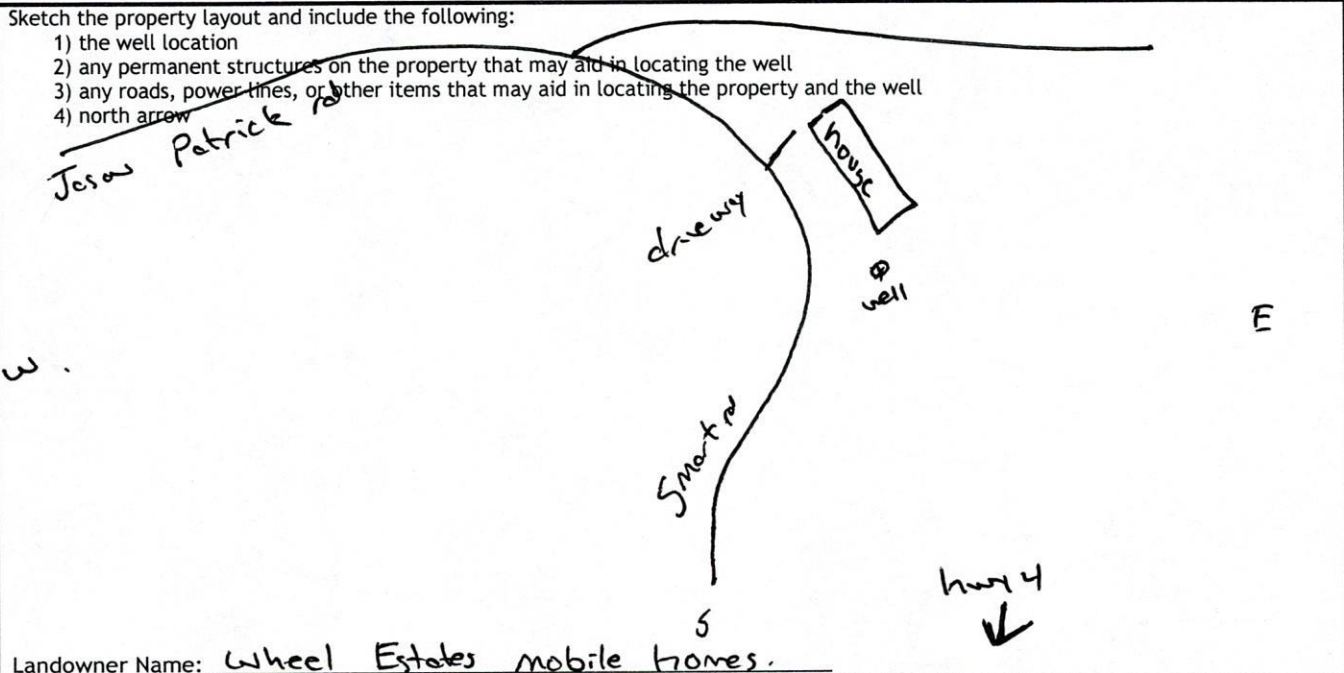 Sketch the property layout and include the following:
1) the well location
2) any permanent structures on the property that may aid in locating the well
3) any roads, power lines, or other items that may aid in locating the property and the well
4) north arrow
Jason Patrick rd
house
driveway
well
E
W.
Smart rd
hwy 4
S
Landowner Name: Wheel Estates mobile homes.